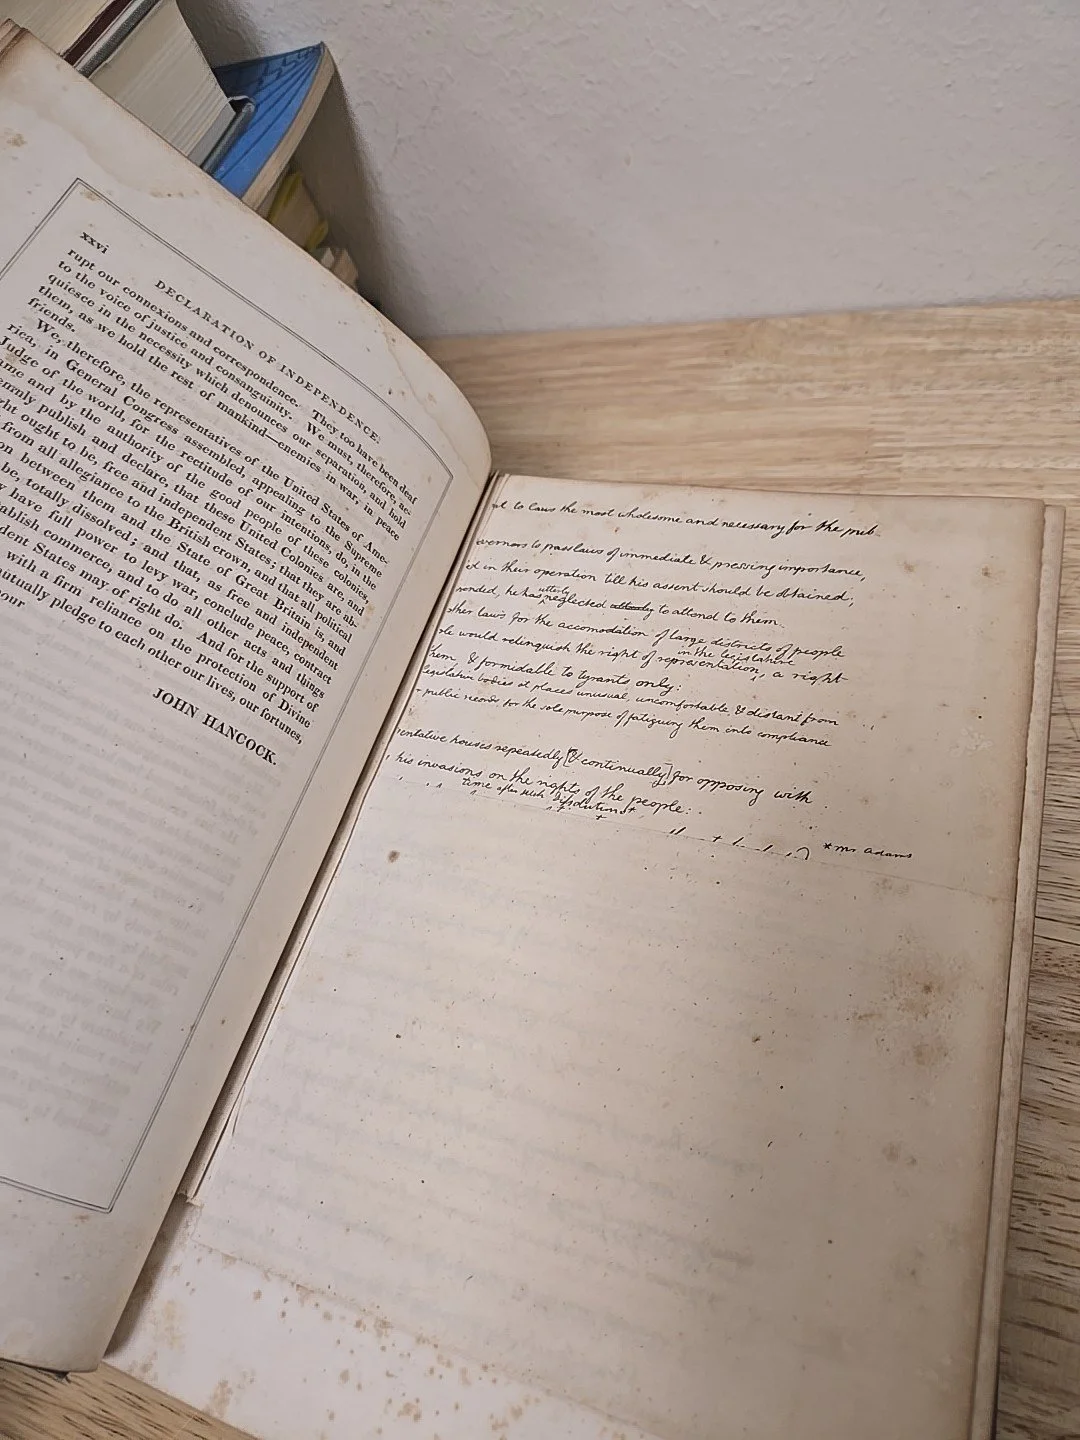 xxvi
DECLARATION OF INDEPENDENCE.
rupt our connexions and correspondence. They too have been deaf
to the voice of justice and consanguinity. We must, therefore, ac-
quiesce in the necessity which denounces our separation, and hold
them, as we hold the rest of mankind—enemies in war, in peace
friends.
We, therefore, the representatives of the United States of Ame-
rica, in General Congress assembled, appealing to the Supreme
Judge of the world, for the rectitude of our intentions, do, in the
ame and by the authority of the good people of these colonies,
emnly publish and declare, that these United Colonies are, and
ght ought to be, free and independent States; that they are ab-
from all allegiance to the British crown, and that all political
on between them and the State of Great Britain is, and
be, totally dissolved; and that, as free and independent
y have full power to levy war, conclude peace, contract
tablish commerce, and to do all other acts and things
dent States may of right do. And for the support of
with a firm reliance on the protection of Divine
mutually pledge to each other our lives, our fortunes,
our
JOHN HANCOCK.
nt to laws the most wholesome and necessary for the pub-
vernors to pass laws of immediate & pressing importance,
ed in their operation till his assent should be obtained;
ended, he has utterly neglected utterly to attend to them.
other laws for the accomodation of large districts of people
ple would relinquish the right of representation in the legislature, a right
them, & formidable to tyrants only:
legislative bodies at places unusual, uncomfortable & distant from
public records for the sole purpose of fatiguing them into compliance
entative houses repeatedly [& continually] for opposing with
his invasions on the rights of the people:
time after such dissolutions*
* Mr Adams